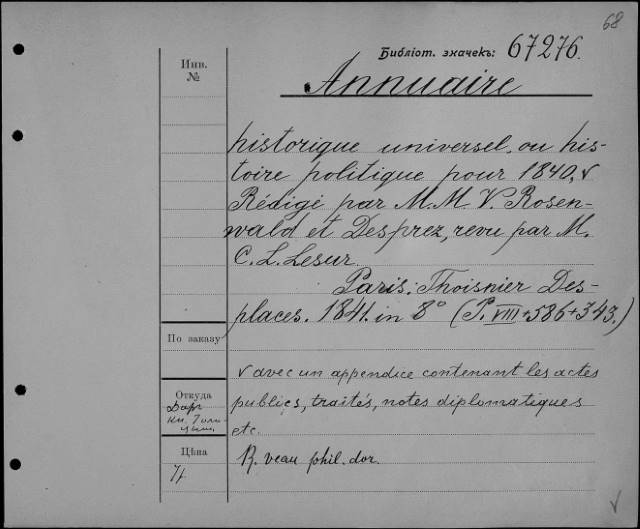 68
Библіот. значекъ: 67276.
Инв.
№
Annuaire
historique universel, ou his-
toire politique pour 1840, v
Rédigé par M.M. V. Rosen-
wald et Desprez, revu par M.
C. L. Lesur.
Paris: Thoisnier Des-
places. 1841. in 8° (P. VIII + 586 + 343.)
По заказу
v avec un appendice contenant les actes
Откуда
Даръ
publics, traités, notes diplomatiques
кн. Голи-
цына
etc.
Цѣна
R. veau phil. dor.